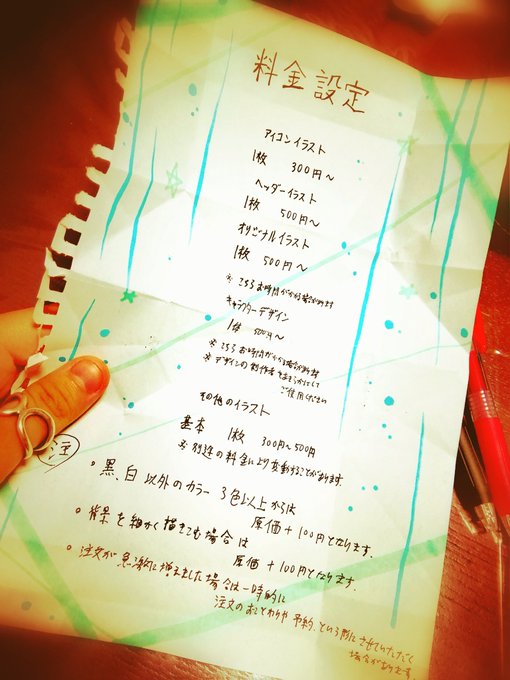 料金設定
アイコンイラスト
1枚 300円〜
ヘッダーイラスト
1枚 500円〜
オリジナルイラスト
1枚 500円〜
※ こちらお時間がかかる場合があります
キャラクターデザイン
1体 500円〜
※ こちらお時間がかかる場合があります
※ デザインの制作者をあきらかにして
ご使用ください
その他のイラスト
基本 1枚 300円〜500円
※ 別途の料金により変動することがあります.
注
・黒、白 以外のカラー 3色以上からは
原価+100円となります.
・背景を細かく描きこむ場合は
原価+100円となります.
・注文が急激に増えました場合は一時的に
注文のおことわりや予約、という形にさせていただく
場合があります.